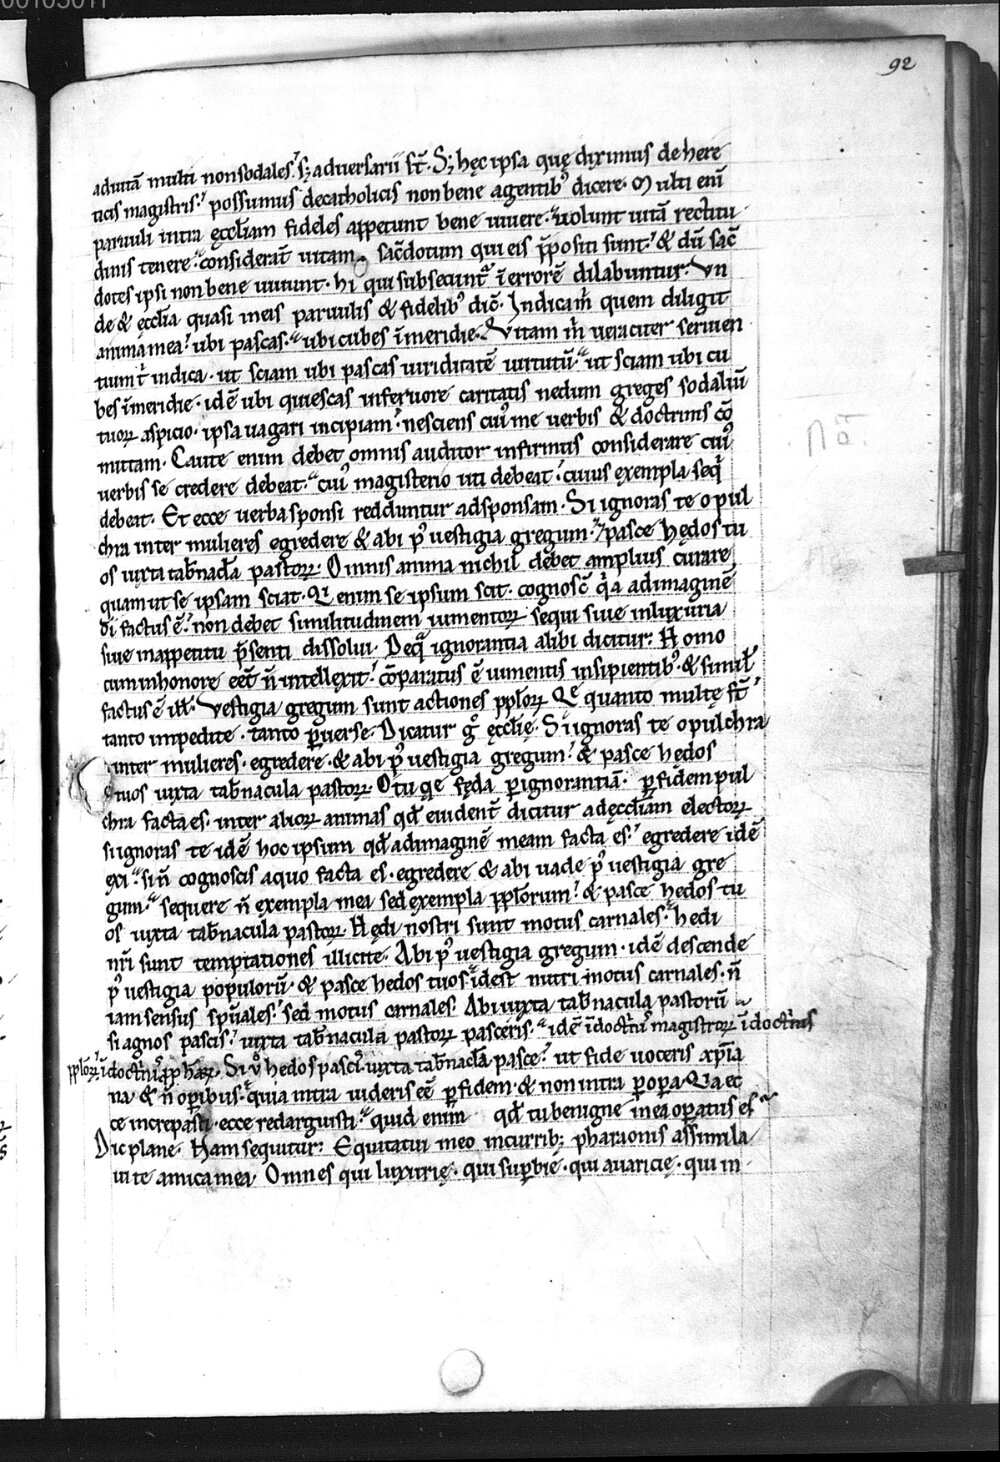 00103011
92
adiuuā multi non sodales. s; aduersarii st̄. S; hęc ipsa quę diximus de here
ticis magistris. possumus de catholicis non bene agentib; dicere. Multi enī
paruuli intra ęccłiam fideles appetunt bene uiuere. uolunt uitā rectitu
dinis tenere. considerant̄ uitam sac̄dotum qui eis p̄positi sunt. & dū sac̄
dotes ipsi non bene uiuunt. hi qui subsecunt̄ ī errorē dilabuntur. Vn
de & ęccłia quasi in eis paruulis & fidelib; dic̄. Indica m̄ quem diligit
anima mea. ubi pascas. ubi cubes ī meridie. Vitam m̄ ueraciter seruien
tium t̄ indica. ut sciam ubi pascas uiriditatē uirtutū. ut sciam ubi cu
bes ī meridie. idē ubi quiescas in feruore caritatis ne dum greges sodaliū
tuoꝝ aspicio. ipsa uagari incipiam. nesciens cuiꝰ me uerbis & doctrinis cō
mittam. Caute enim debet omnis auditor infirmus considerare cuiꝰ
uerbis se credere debeat. cuiꝰ magisterio uti debeat. cuius exempla seq̄
debeat. Et ecce uerba sponsi redduntur ad sponsam. Si ignoras te o pul
chra inter mulieres egredere & abi pꝰ uestigia gregum. & pasce hędos tu
os iuxta tab̄nacła pastoꝝ. Omnis anima nichil debet amplius curare
quam ut se ipsam sciat. Qi enim se ipsum scit. cognosc̄ q̄a ad imaginē
dī factus ē. non debet similitudinem iumentoꝝ sequi siue in luxuria
siue in appetitu p̄senti dissolui. De q̄ ignorantia alibi dicitur: Homo
cum in honore eēt n̄ intellexit. cōparatus ē iumentis insipientib; & simił
factus ē ill̄. Vestigia gregum sunt actiones pplōꝝ. Qę quanto multę st̄
tanto impedite. tanto ꝑuerse. Dicatur gͦ ęccłię. Si ignoras te o pulchra
inter mulieres. egredere. & abi pꝰ uestigia gregum. & pasce hedos
tuos iuxta tab̄nacula pastoꝝ. O tu que fęda ꝑ ignorantiā. ꝑ fidem pul
chra facta es. inter alioꝝ animas qd̄ euident̄ dicitur ad ęccłiam electoꝝ
si ignoras te idē hoc ipsum qd̄ ad imaginē meam facta es. egredere idē
exi. si n̄ cognoscis a quo facta es. egredere & abi uade pꝰ uestigia gre
gum. sequere n̄ exempla mea sed exempla pplōrum. & pasce hedos tu
os iuxta tab̄nacula pastoꝝ. Hędi nostri sunt motus carnales. hedi
nr̄i sunt temptationes illicite. Abi pꝰ uestigia gregum. idē descende
pꝰ uestigia populorū. & pasce hedos tuos. idest nutri motus carnales. n̄
iam sensus spūales. sed motus carnales. Abi iuxta tab̄nacula pastorū
si agnos pascis. iuxta tab̄nacula pastoꝝ pasceris. idē ī doctrinꝰ magistroꝝ ī doctrinis
pplōꝝ. ī doctrinꝰ pphaꝝ. Si ṽ hedos pascis. iuxta tab̄nacła pasce. ut fide uoceris xp̄ia
na & n̄ oꝑibus. quia intra uideris eē ꝑ fidem. & non intra ꝑ oꝑa. Qia ec
ce increpasti. ecce redarguisti. quid enim qd̄ tu benigne in ea oꝑatus es
Dic plane. Nam sequitur: Equitatui meo in currib; pharaonis assimila
ui te amica mea. Omnes qui luxurię. qui suꝑbię. qui auaricię. qui in